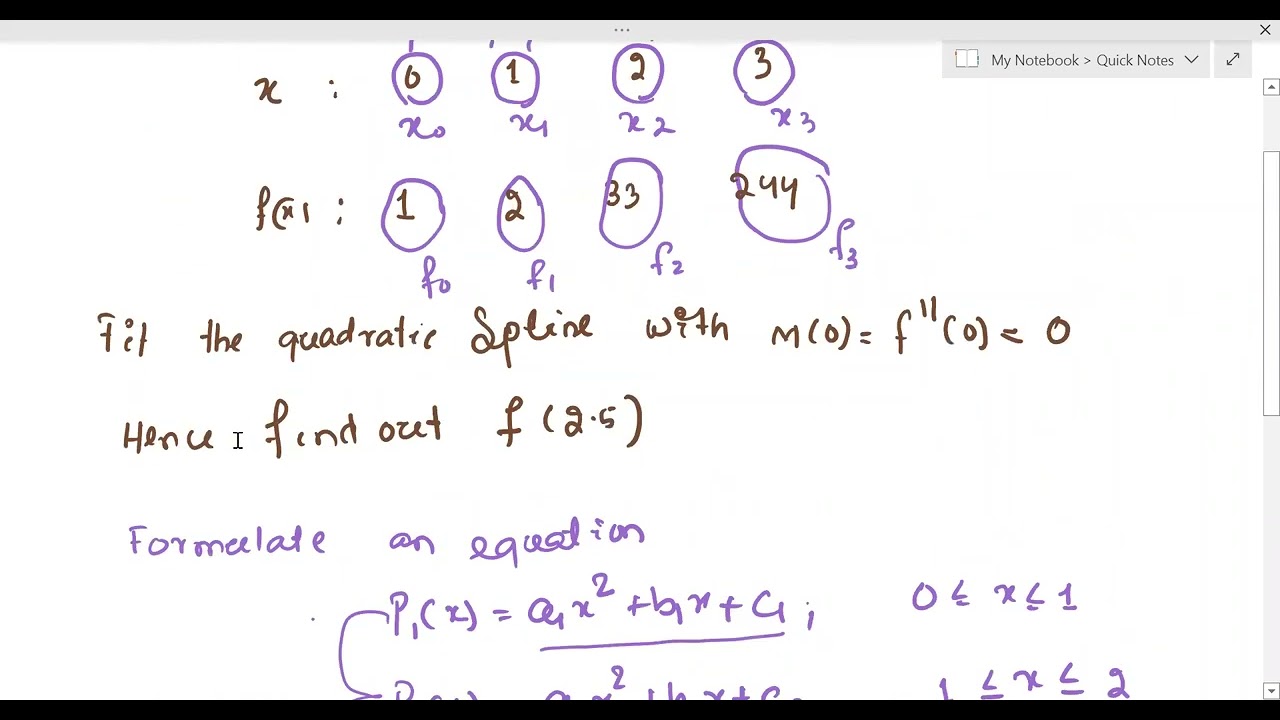 My Notebook > Quick Notes
x : 0 1 2 3
x0 x1 x2 x3
f(x) : 1 2 33 244
f0 f1 f2 f3
Fit the quadratic Spline with M(0) = f''(0) = 0
Hence find out f(2.5)
Formulate an equation
P1(x) = a1x² + b1x + c1 ; 0 ≤ x ≤ 1
1 ≤ x ≤ 2